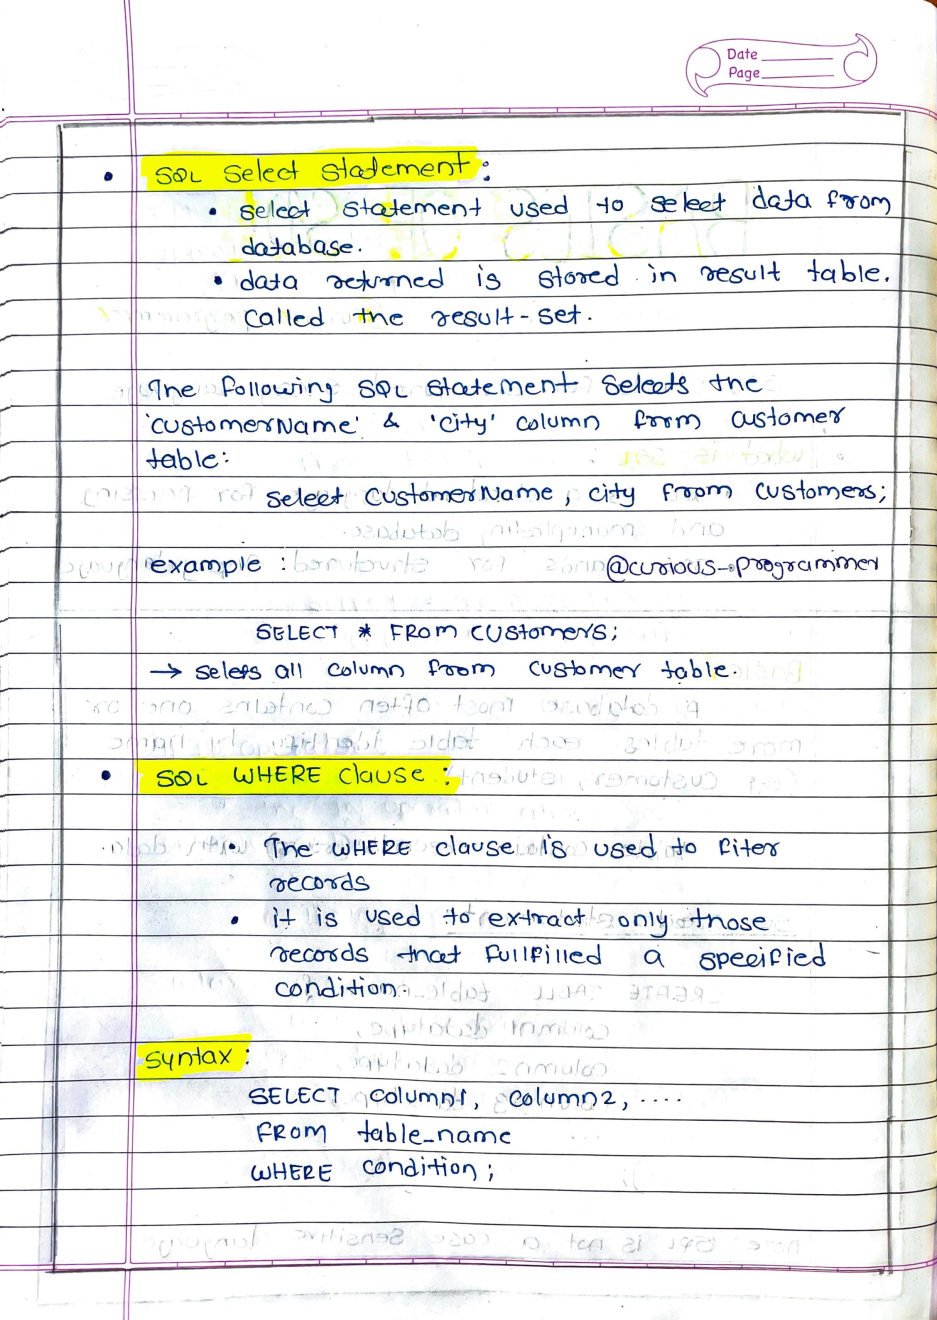 Date
Page
• SQL Select Statement :
• select statement used to select data from
database.
• data returned is stored in result table.
Called the result-set.
The following SQL statement selects the
'customerName' & 'city' column from customer
table:
select customerName, city from customers;
example : @curious_.programmer
SELECT * FROM customers;
→ selets all column from customer table.
• SQL WHERE clause :
• The WHERE clause is used to fiter
records
• it is used to extract only those
records that fullfilled a specified
condition.
syntax :
SELECT column1, column2, ....
FROM table_name
WHERE condition;